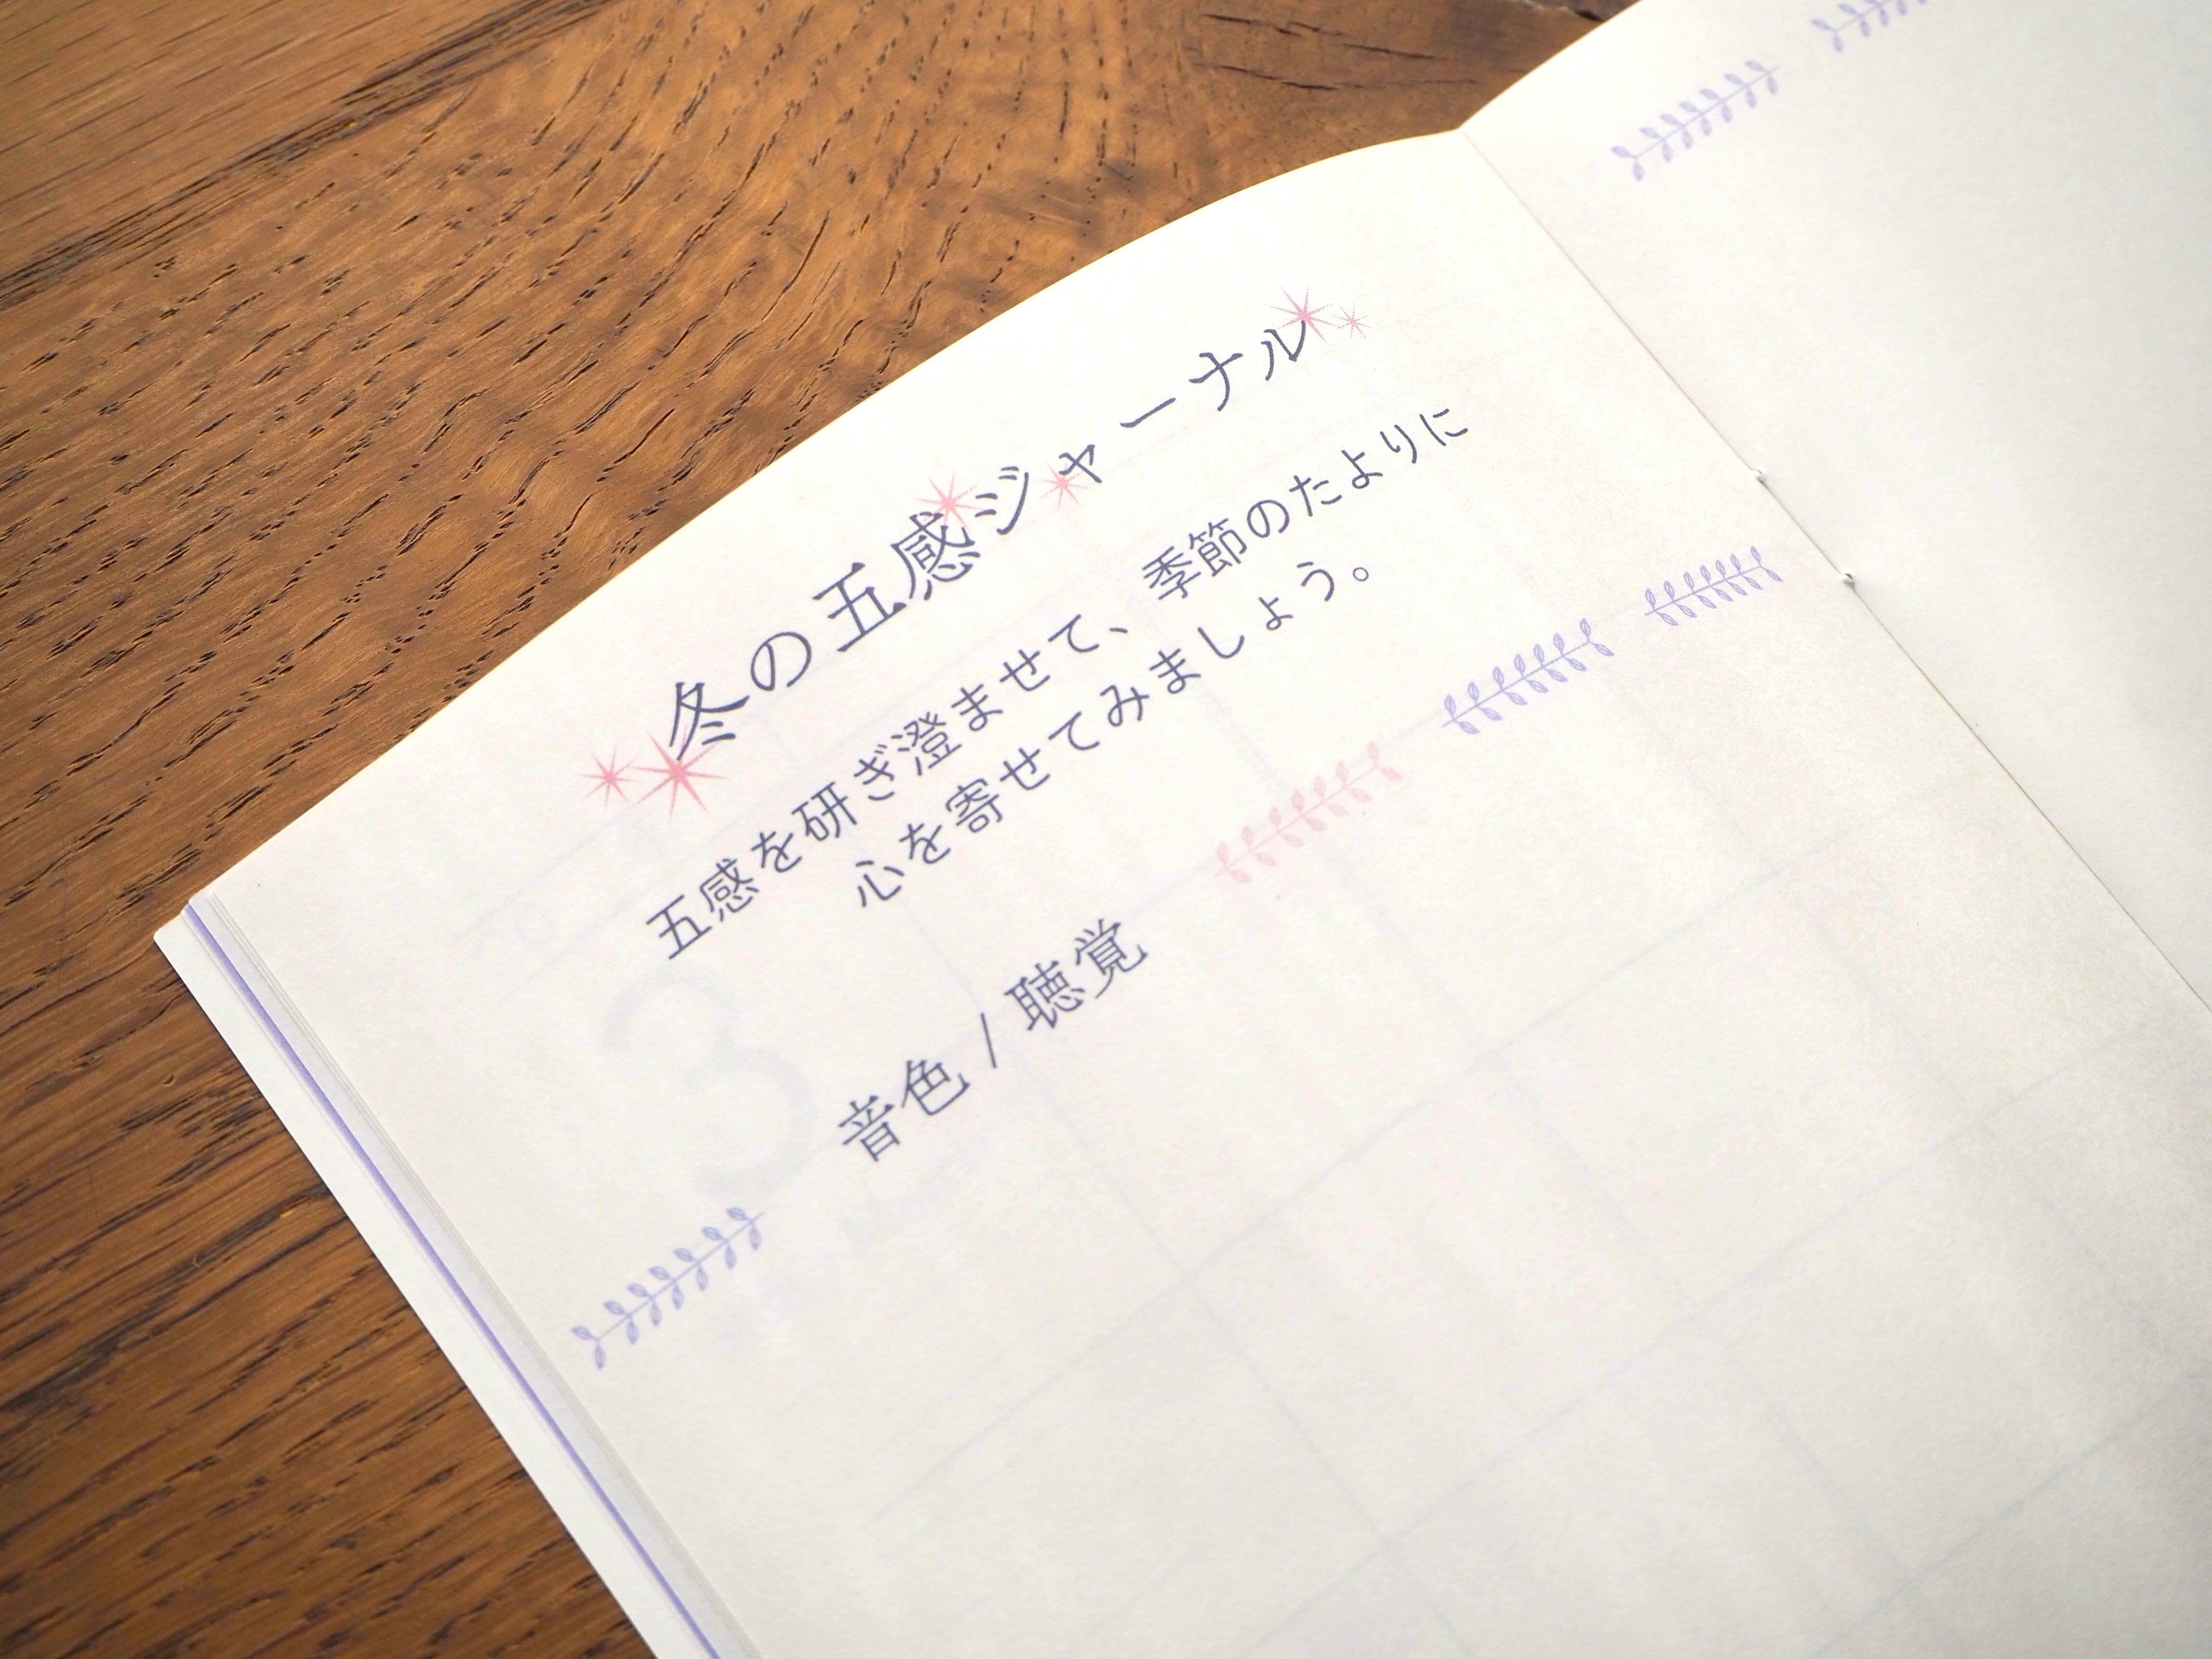 冬の五感ジャーナル
五感を研ぎ澄ませて、季節のたよりに
心を寄せてみましょう。
音色 / 聴覚
3